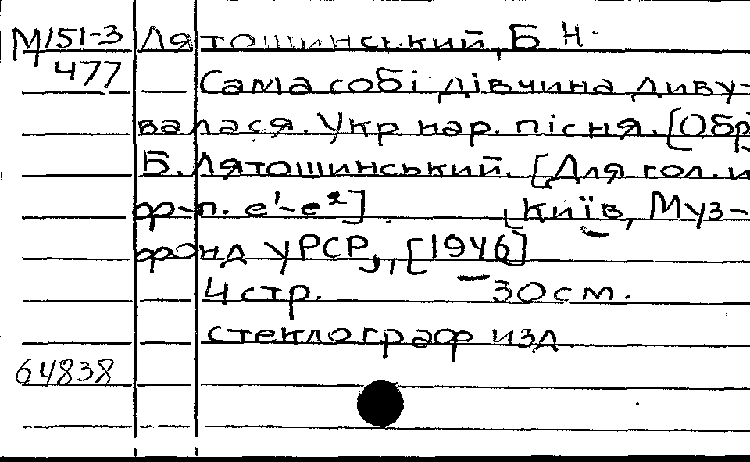 М151-3 Лятошинський, Б. Н.
477 Сама собі дівчина диву-
валася. Укр нар. пісня. [Обр
Б. Лятошинський. [Для гол. и
ф-п. e¹-e²] [Київ, Муз-
фонд УРСР, [1946]
4 стр. 30 см.
стеклограф изд.
64838